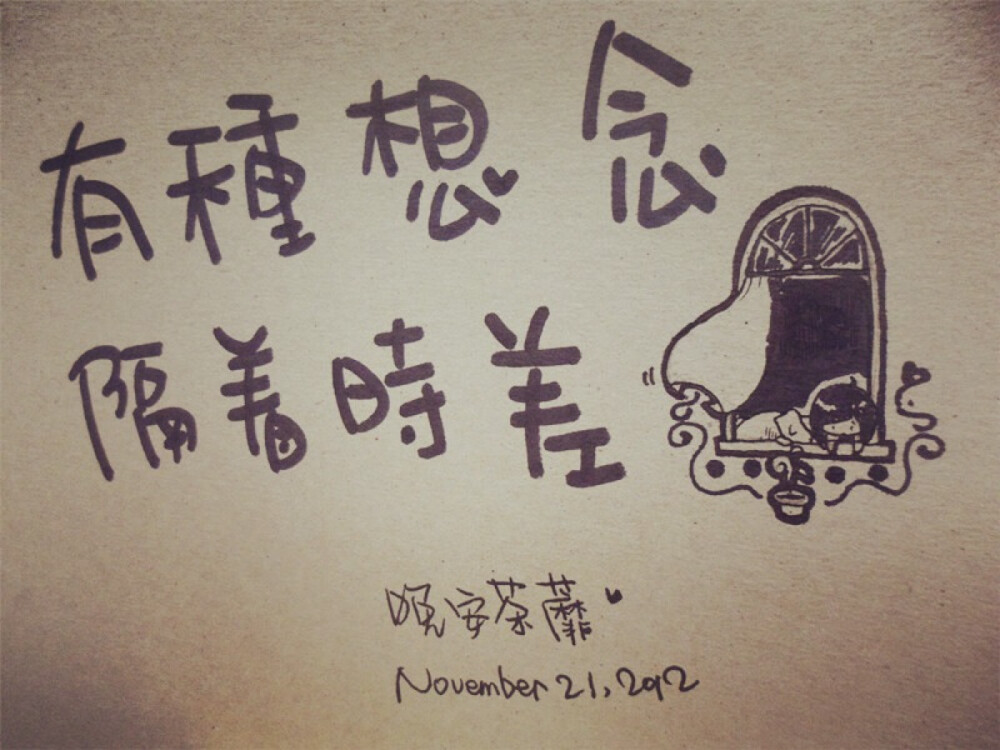 有種想念
隔着時差
晚安荼蘼
November 21, 2012